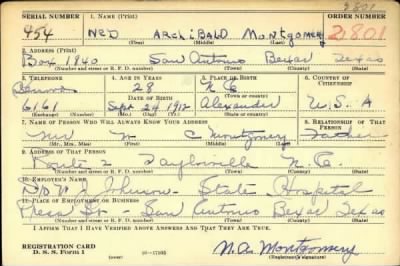 2801
SERIAL NUMBER 1. NAME (Print) ORDER NUMBER
454 NED ARCHIBALD MONTGOMERY 2801
(First) (Middle) (Last)
2. ADDRESS (Print)
Box 1840 San Antonio Bexar Texas
(Number and street or R. F. D. number) (Town) (County) (State)
3. TELEPHONE 4. AGE IN YEARS 5. PLACE OF BIRTH 6. COUNTRY OF CITIZENSHIP
28 N C
DATE OF BIRTH
6161 Sept. 24 1912 Alexander U.S.A
(Exchange) (Number) (Mo.) (Day) (Yr.) (State or country)
7. NAME OF PERSON WHO WILL ALWAYS KNOW YOUR ADDRESS 8. RELATIONSHIP OF THAT PERSON
Mr C Montgomery Father
(Mr., Mrs., Miss) (First) (Middle) (Last)
9. ADDRESS OF THAT PERSON
Route 2 Taylorsville N. C.
(Number and street or R. F. D. number) (Town) (County) (State)
10. EMPLOYER'S NAME
Johnson - State Hospital
11. PLACE OF EMPLOYMENT OR BUSINESS
San Antonio Bexar Texas
(Number and street or R. F. D. number) (Town) (County) (State)
I AFFIRM THAT I HAVE VERIFIED ABOVE ANSWERS AND THAT THEY ARE TRUE.
REGISTRATION CARD
D. S. S. Form 1 16—17105 N.A. Montgomery
(Registrant's signature)